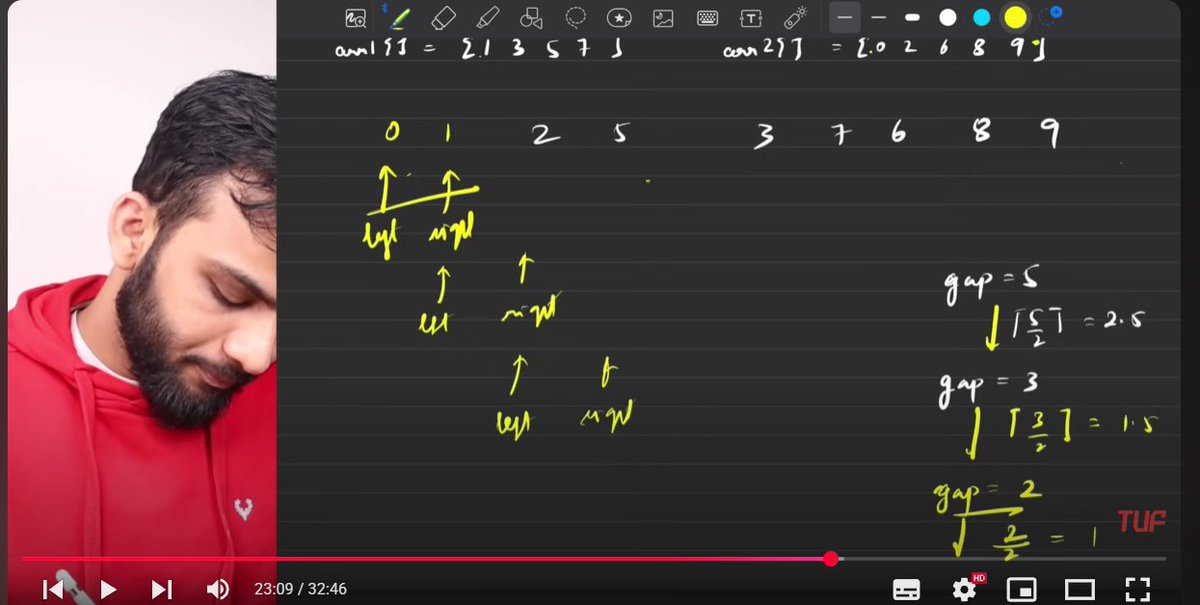 arr1[] = [1 3 5 7] arr2[] = [0 2 6 8 9]
0 1 2 5 3 7 6 8 9
left right
left right
left right
gap = 5
⌈5/2⌉ = 2.5
gap = 3
⌈3/2⌉ = 1.5
gap = 2
2/2 = 1
TUF
23:09 / 32:46
HD